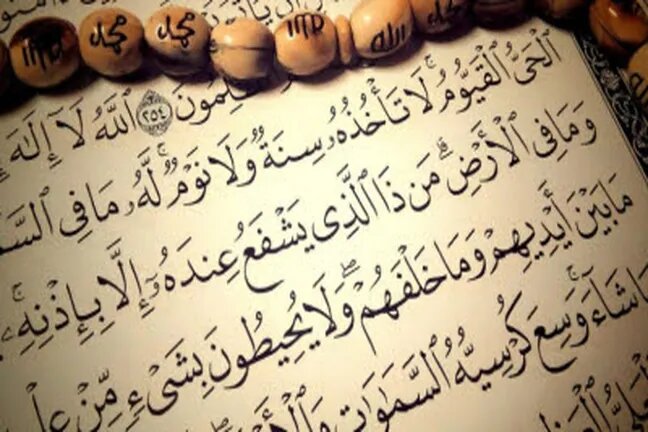 محمد محمد الله
ـلِمُونَ ٢٥٤ ٱللَّهُ لَآ إِلَٰهَ
ٱلْحَىُّ ٱلْقَيُّومُ ۚ لَا تَأْخُذُهُۥ سِنَةٌ وَلَا نَوْمٌ ۚ لَّهُۥ مَا فِى ٱلسَّمَـ
وَمَا فِى ٱلْأَرْضِ ۗ مَن ذَا ٱلَّذِى يَشْفَعُ عِندَهُۥٓ إِلَّا بِإِذْنِهِۦ ۚ
مَا بَيْنَ أَيْدِيهِمْ وَمَا خَلْفَهُمْ ۖ وَلَا يُحِيطُونَ بِشَىْءٍ مِّنْ عِلْـ
شَآءَ ۚ وَسِعَ كُرْسِيُّهُ ٱلسَّمَٰوَٰتِ وَٱلْأَرْ